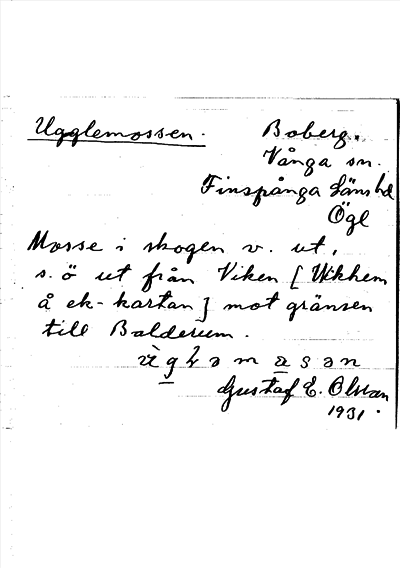 Ugglemossen.
Boberg.
Vånga sn.
Finspånga Läns hd
Ögl
Mosse i skogen v. ut,
s. ö ut från Viken [Vikhem
å ek-kartan] mot gränsen
till Balderum.
Gustaf E. Olsson
1931.